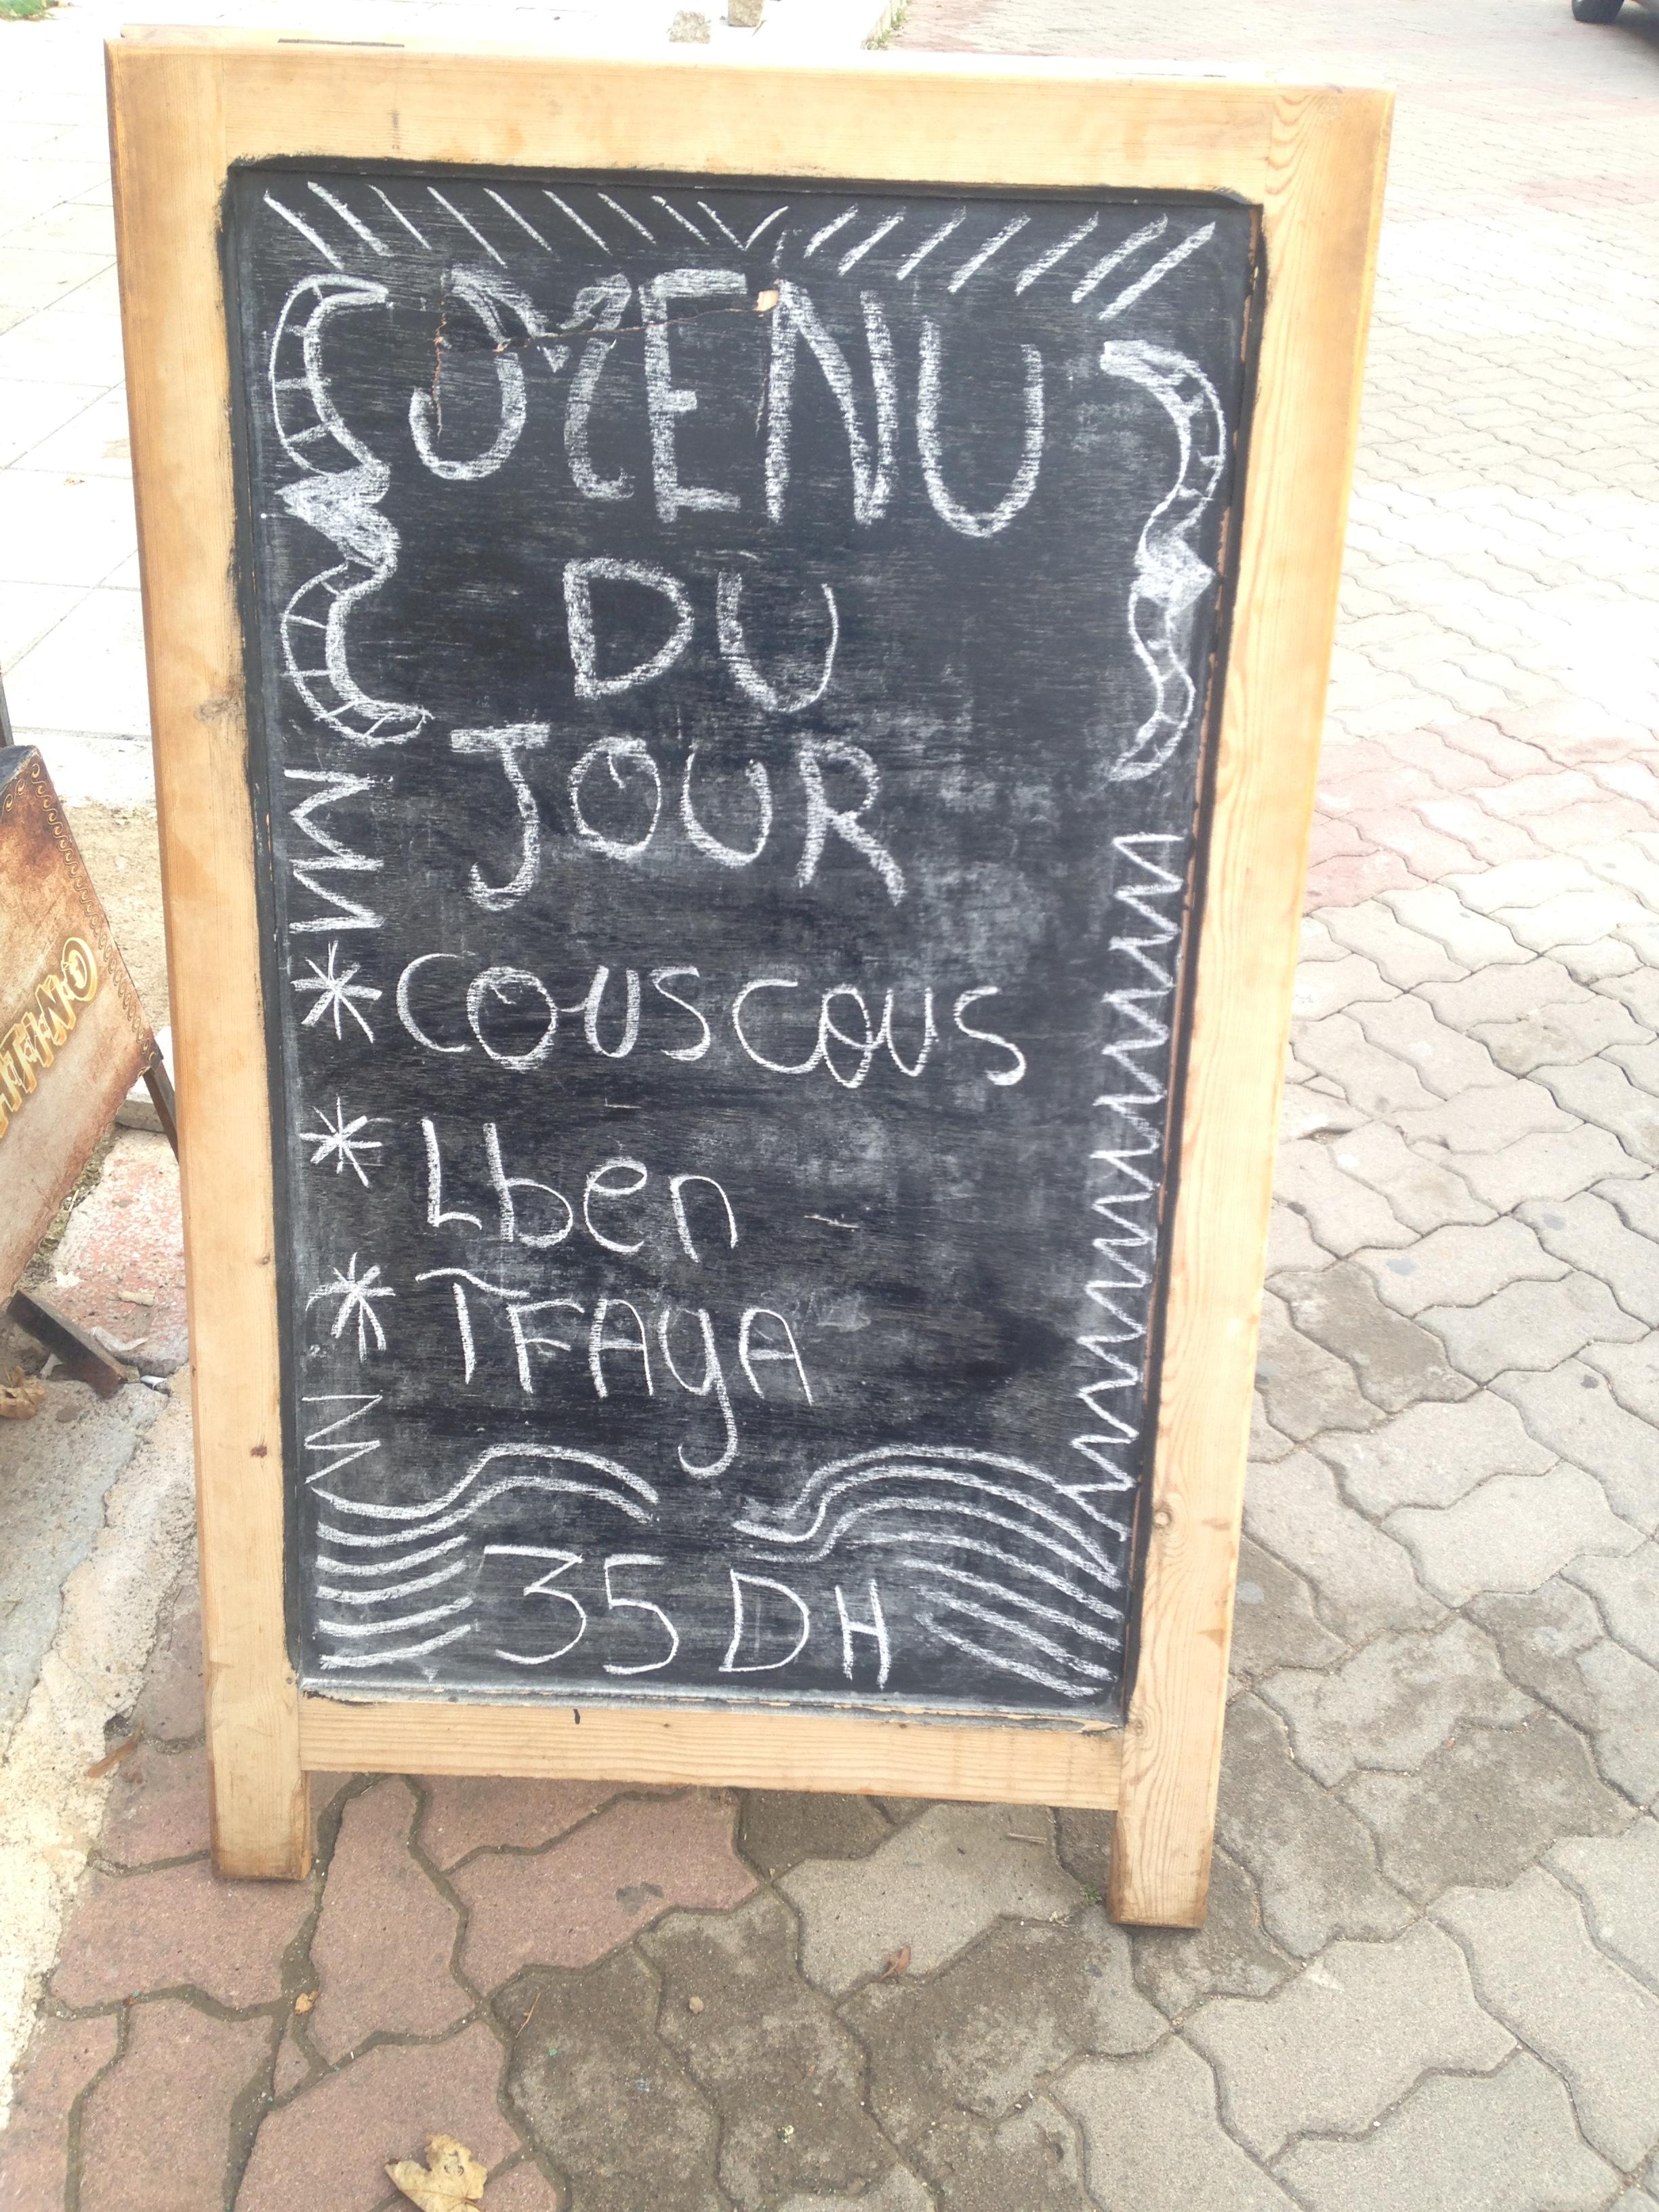 MENU
DU
JOUR
* COUSCOUS
* Lben
* TFAYA
35 DH